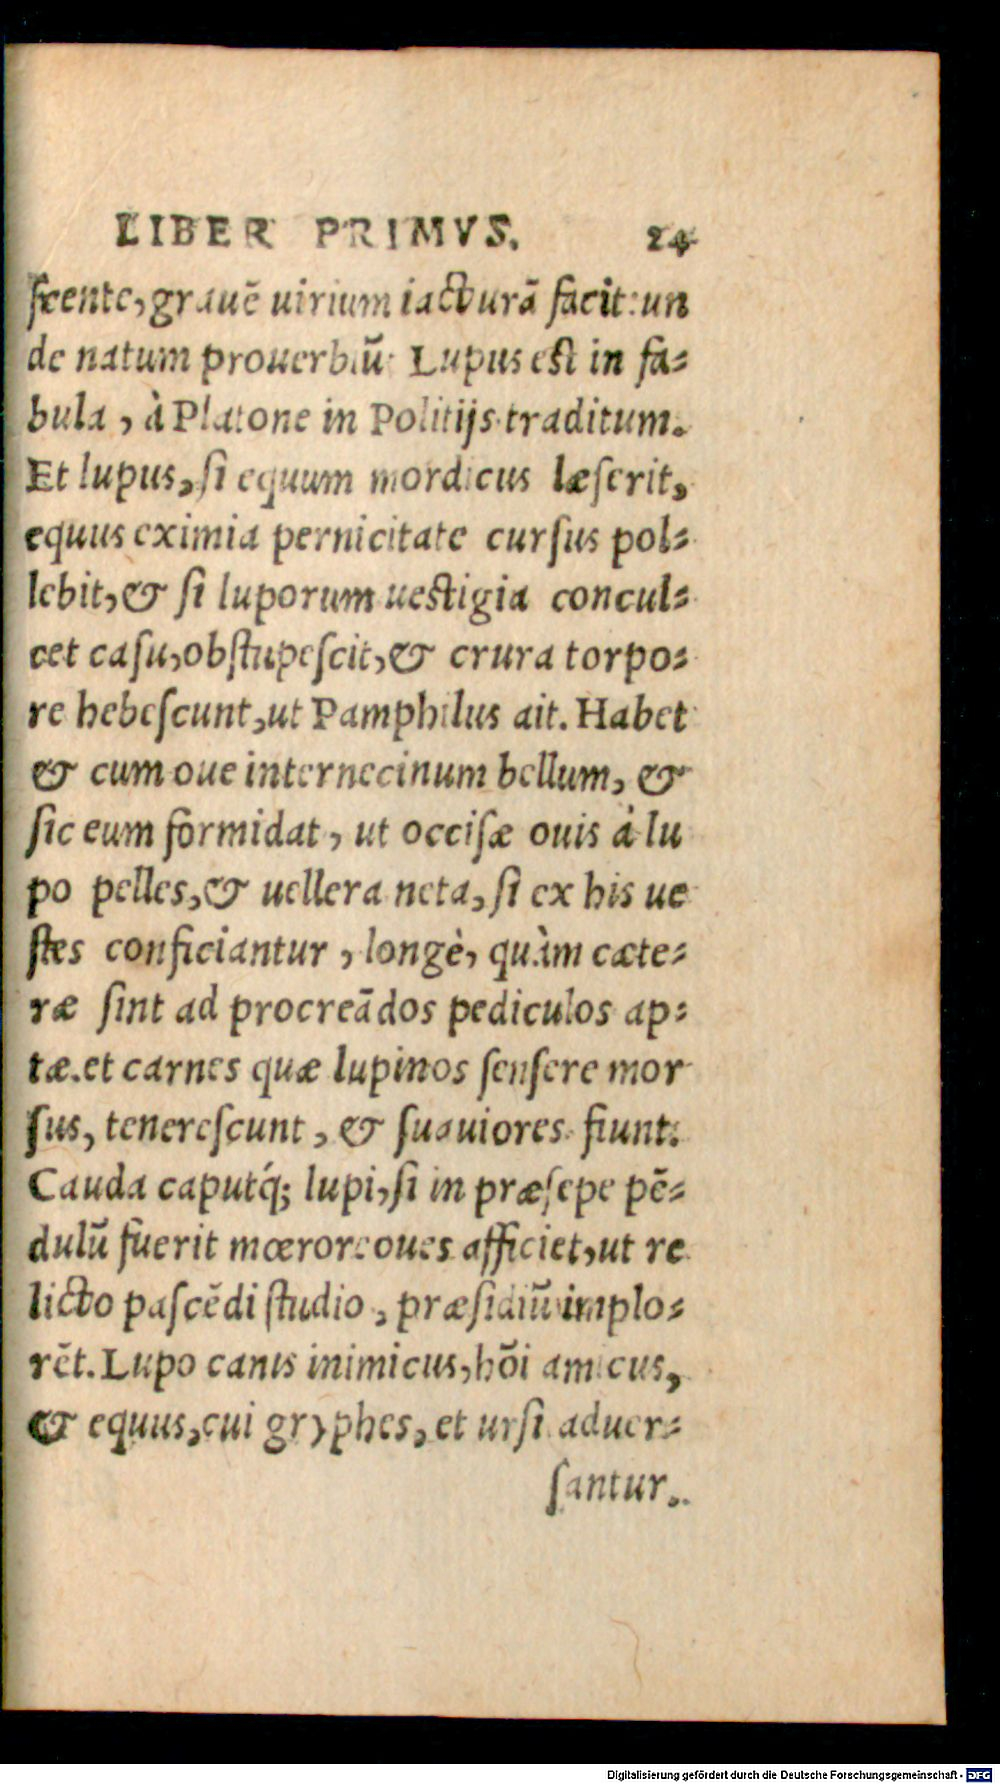 LIBER PRIMVS. 24
ſcente, grauē uirium iacturā facit: un
de natum prouerbiū Lupus est in fa-
bula, à Platone in Politijs traditum.
Et lupus, ſi equum mordicus læſerit,
equus eximia pernicitate curſus pol-
lebit, & ſi luporum uestigia concul-
cet caſu, obſtupeſcit, & crura torpo-
re hebeſcunt, ut Pamphilus ait. Habet
& cum oue internecinum bellum, &
ſic eum formidat, ut occiſæ ouis à lu
po pelles, & uellera neta, ſi ex his ue
ſtes conficiantur, longè, quàm cæte-
ræ ſint ad procreādos pediculos ap-
tæ. et carnes quæ lupinos ſenſere mor
ſus, tenereſcunt, & ſuauiores fiunt.
Cauda caputq́; lupi, ſi in præſepe pē-
dulū fuerit mœrore oues afficiet, ut re
licto paſcēdi ſtudio, præſidiū implo-
rēt. Lupo canis inimicus, hōi amicus,
& equus, cui gryphes, et urſi aduer-
ſantur.
Digitalisierung gefördert durch die Deutsche Forschungsgemeinschaft - DFG